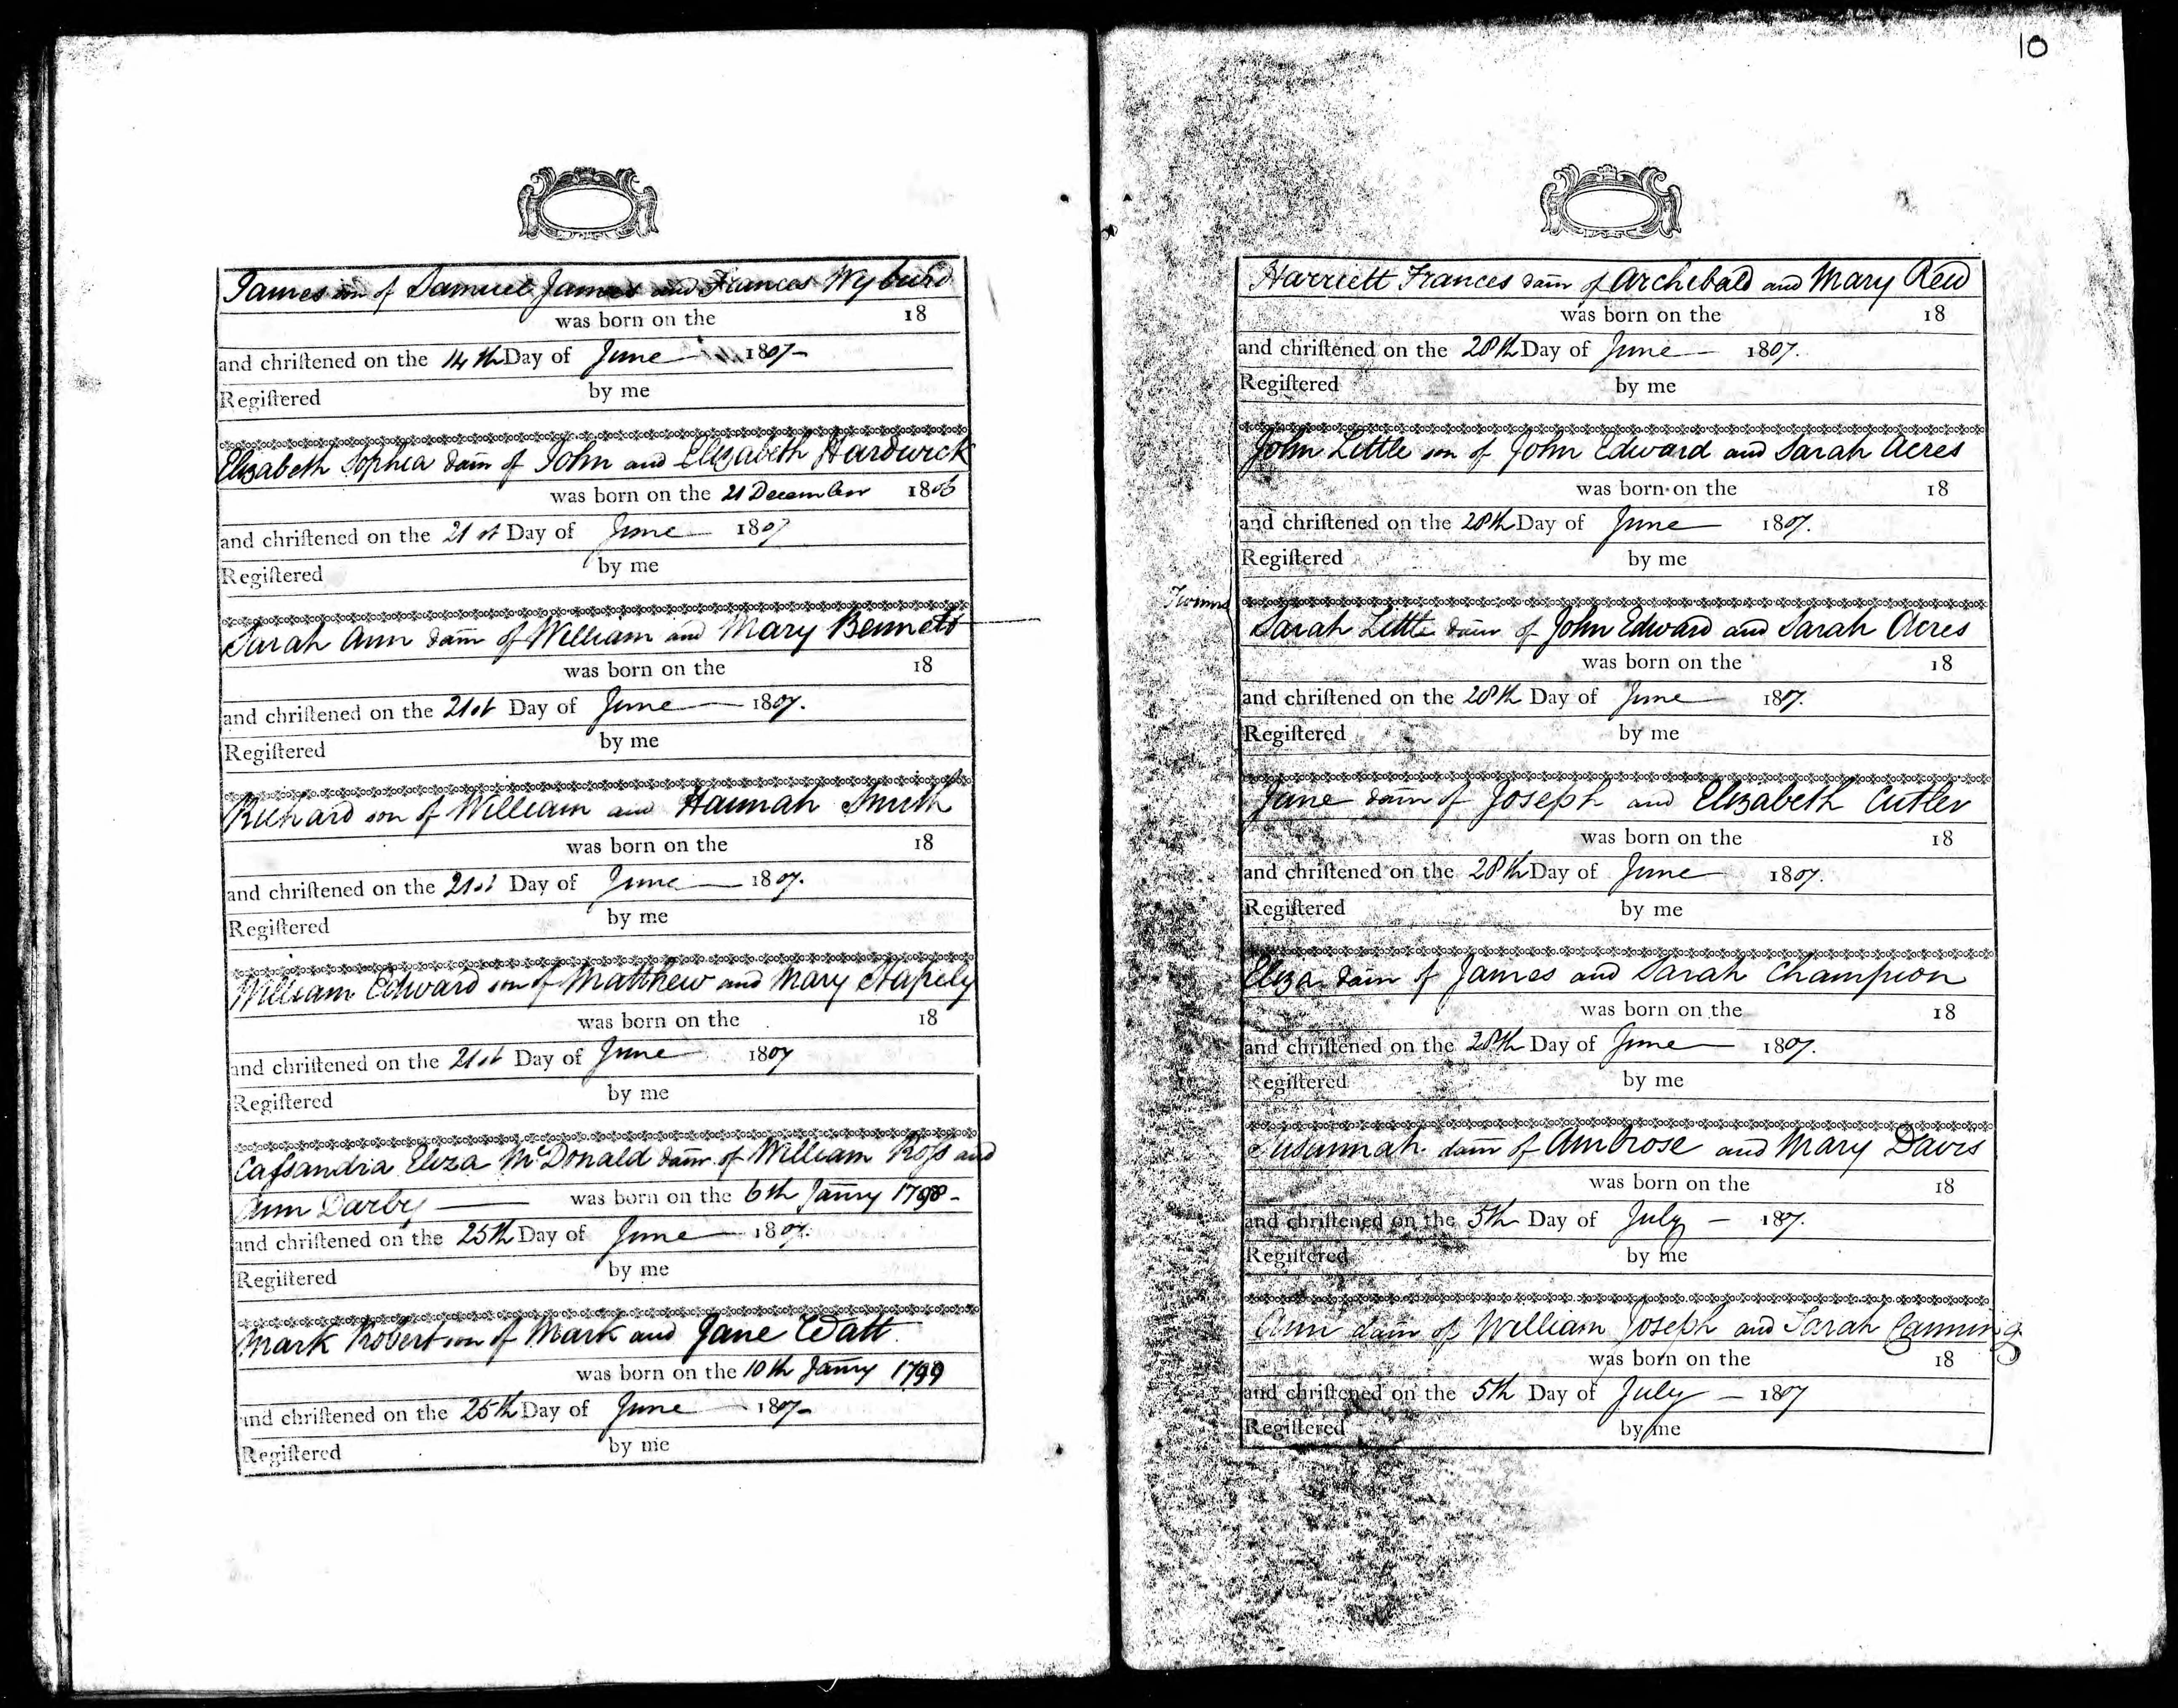 James son of Samuel James and Frances Wyburd
was born on the 18
and chriſtened on the 14th Day of June 1807-
Regiſtered by me
Elizabeth Sophia daūr of John and Elizabeth Hardwick
was born on the 21 December 1806
and chriſtened on the 21st Day of June 1807
Regiſtered by me
Sarah Ann daūr of William and Mary Bennett
was born on the 18
and chriſtened on the 21st Day of June 1807.
Regiſtered by me
Richard son of William and Hannah Smith
was born on the 18
and chriſtened on the 21st Day of June 1807.
Regiſtered by me
William Edward son of Matthew and Mary Stapely
was born on the 18
and chriſtened on the 21st Day of June 1807
Regiſtered by me
Caſsandra Eliza McDonald daūr of William Roſs and
Ann Darby was born on the 6th Janry 1798-
and chriſtened on the 25th Day of June 1807.
Regiſtered by me
Mark Robert son of Mark and Jane Watt.
was born on the 10th Janry 1799
and chriſtened on the 25th Day of June 1807-
Regiſtered by me
10
Harriett Frances daūr of Archibald and Mary Reid
was born on the 18
and chriſtened on the 28th Day of June 1807.
Regiſtered by me
John Little son of John Edward and Sarah Acres
was born on the 18
and chriſtened on the 28th Day of June 1807.
Regiſtered by me
Twins
Sarah Little daūr of John Edward and Sarah Acres
was born on the 18
and chriſtened on the 28th Day of June 1807.
Regiſtered by me
Jane daūr of Joseph and Elizabeth Cutler
was born on the 18
and chriſtened on the 28th Day of June 1807.
Regiſtered by me
Eliza daūr of James and Sarah Champion
was born on the 18
and chriſtened on the 28th Day of June 1807.
Regiſtered by me
Susannah daūr of Ambrose and Mary Davis
was born on the 18
and chriſtened on the 5th Day of July - 1807.
Regiſtered by me
Ann daūr of William Joseph and Sarah Canning
was born on the 18
and chriſtened on the 5th Day of July - 1807
Regiſtered by me